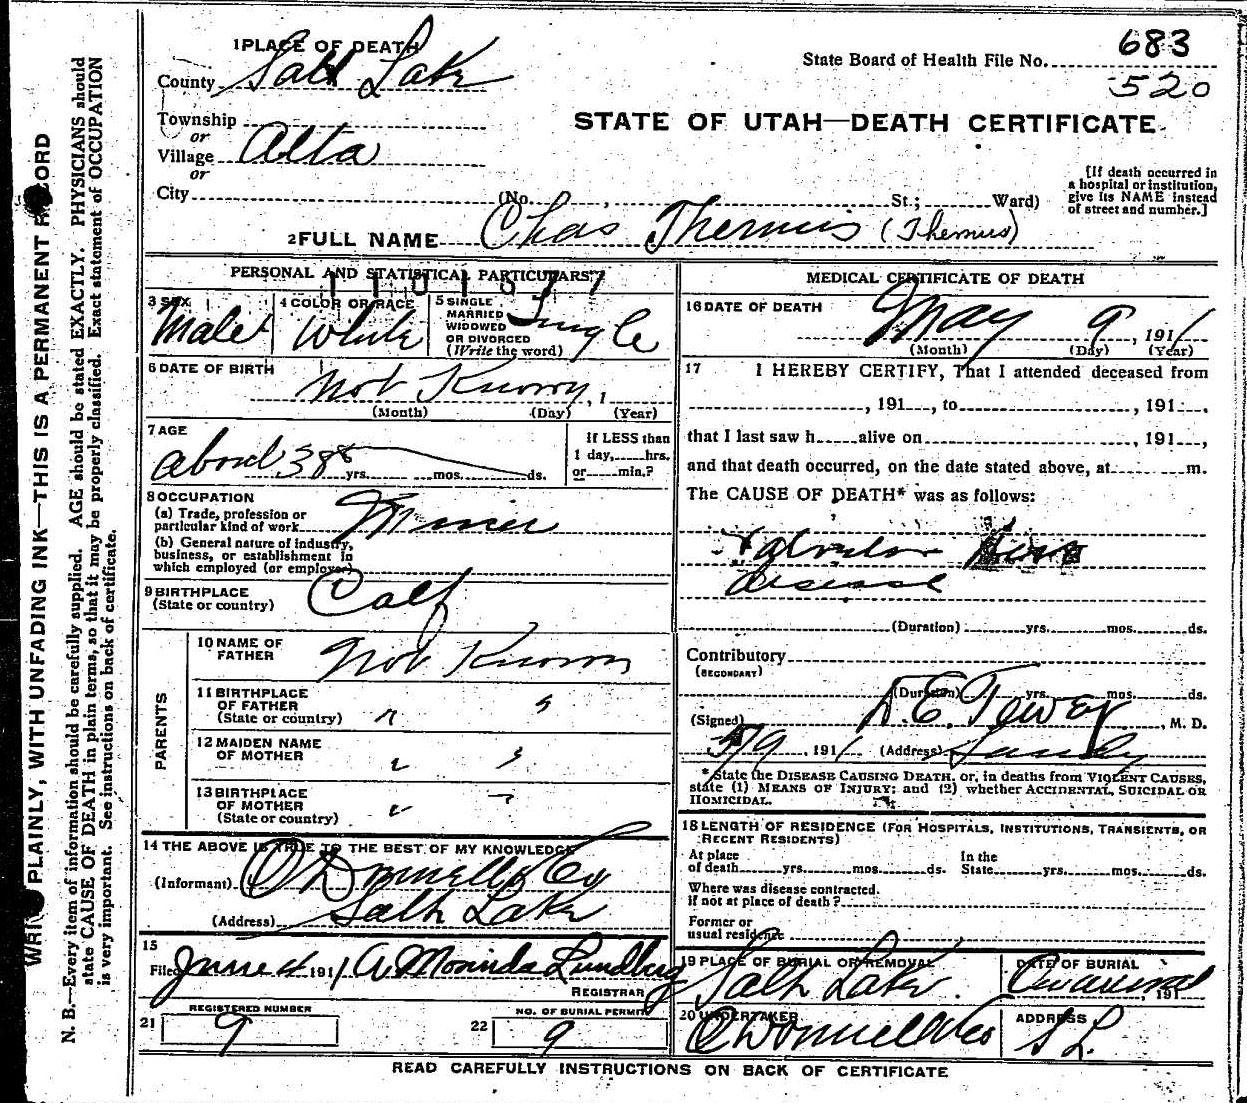 683
State Board of Health File No.
520
1 PLACE OF DEATH
County Salt Lake
STATE OF UTAH—DEATH CERTIFICATE
Township
or
Village Alta
or
City
(No. , St.; Ward)
[If death occurred in
a hospital or institution,
give its NAME instead
of street and number.]
2 FULL NAME Chas Thermis (Thermus)
PERSONAL AND STATISTICAL PARTICULARS
3 SEX Male
4 COLOR OR RACE White
5 SINGLE
MARRIED
WIDOWED
OR DIVORCED
(Write the word) Single
6 DATE OF BIRTH
Not Known, 1
(Month) (Day) (Year)
7 AGE
about 38 yrs. mos. ds.
If LESS than
1 day, hrs.
or min.?
8 OCCUPATION
(a) Trade, profession or
particular kind of work Miner
(b) General nature of industry,
business, or establishment in
which employed (or employer)
9 BIRTHPLACE
(State or country) Calf
PARENTS
10 NAME OF
FATHER Not Known
11 BIRTHPLACE
OF FATHER
(State or country) " "
12 MAIDEN NAME
OF MOTHER " "
13 BIRTHPLACE
OF MOTHER
(State or country) " "
14 THE ABOVE IS TRUE TO THE BEST OF MY KNOWLEDGE
(Informant) O'Donnell & Co
(Address) Salt Lake
15
Filed June 1911 A Morinda Lundberg
REGISTRAR
REGISTERED NUMBER
21 9
NO. OF BURIAL PERMIT
22 9
MEDICAL CERTIFICATE OF DEATH
16 DATE OF DEATH
May 9, 1911
(Month) (Day) (Year)
17 I HEREBY CERTIFY, That I attended deceased from
, 191 , to , 191 .
that I last saw h alive on , 191 ,
and that death occurred, on the date stated above, at m.
The CAUSE OF DEATH* was as follows:
Valvular Heart
disease
(Duration) yrs. mos. ds.
Contributory
(SECONDARY)
(Duration) yrs. mos. ds.
(Signed) , M. D.
5/9, 1911 (Address) Sandy
* State the DISEASE CAUSING DEATH, or, in deaths from VIOLENT CAUSES,
state (1) MEANS OF INJURY; and (2) whether ACCIDENTAL, SUICIDAL OR
HOMICIDAL.
18 LENGTH OF RESIDENCE (FOR HOSPITALS, INSTITUTIONS, TRANSIENTS, OR
RECENT RESIDENTS)
At place
of death yrs. mos. ds.
In the
State yrs. mos. ds.
Where was disease contracted.
if not at place of death?
Former or
usual residence
19 PLACE OF BURIAL OR REMOVAL
Salt Lake.
DATE OF BURIAL
, 191
20 UNDERTAKER
O'Donnell & Co
ADDRESS
S L.
READ CAREFULLY INSTRUCTIONS ON BACK OF CERTIFICATE
WRITE PLAINLY, WITH UNFADING INK—THIS IS A PERMANENT RECORD
N. B.—Every item of information should be carefully supplied. AGE should be stated EXACTLY. PHYSICIANS should
state CAUSE OF DEATH in plain terms, so that it may be properly classified. Exact statement of OCCUPATION
is very important. See instructions on back of certificate.